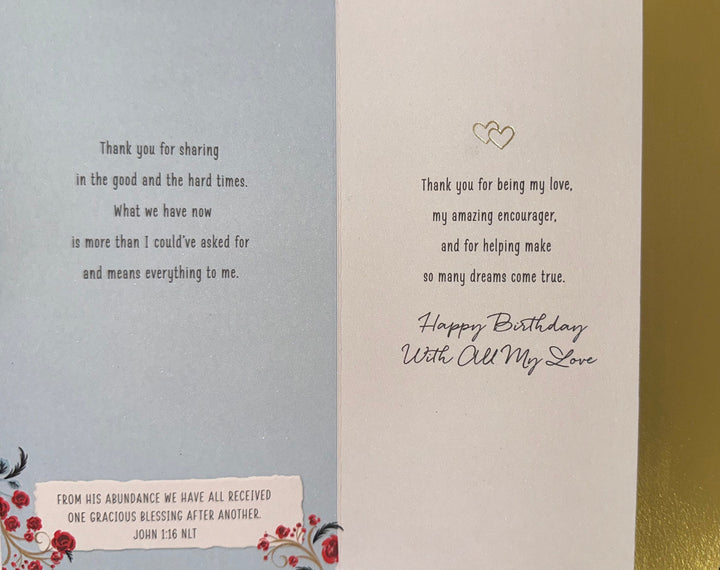 Thank you for sharing
in the good and the hard times.
What we have now
is more than I could've asked for
and means everything to me.
FROM HIS ABUNDANCE WE HAVE ALL RECEIVED
ONE GRACIOUS BLESSING AFTER ANOTHER.
JOHN 1:16 NLT
Thank you for being my love,
my amazing encourager,
and for helping make
so many dreams come true.
Happy Birthday
With All My Love